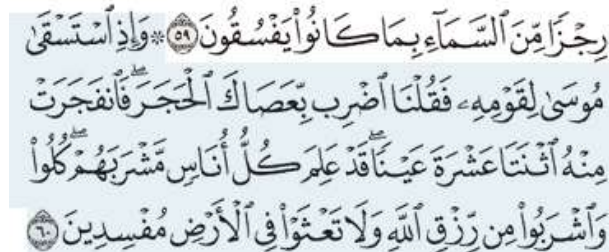 رِجْزًا مِّنَ ٱلسَّمَآءِ بِمَا كَانُوا۟ يَفْسُقُونَ ۝٥٩ ۞ وَإِذِ ٱسْتَسْقَىٰ
مُوسَىٰ لِقَوْمِهِۦ فَقُلْنَا ٱضْرِب بِّعَصَاكَ ٱلْحَجَرَ ۖ فَٱنفَجَرَتْ
مِنْهُ ٱثْنَتَا عَشْرَةَ عَيْنًا ۖ قَدْ عَلِمَ كُلُّ أُنَاسٍ مَّشْرَبَهُمْ ۖ كُلُوا۟
وَٱشْرَبُوا۟ مِن رِّزْقِ ٱللَّهِ وَلَا تَعْثَوْا۟ فِى ٱلْأَرْضِ مُفْسِدِينَ ۝٦٠